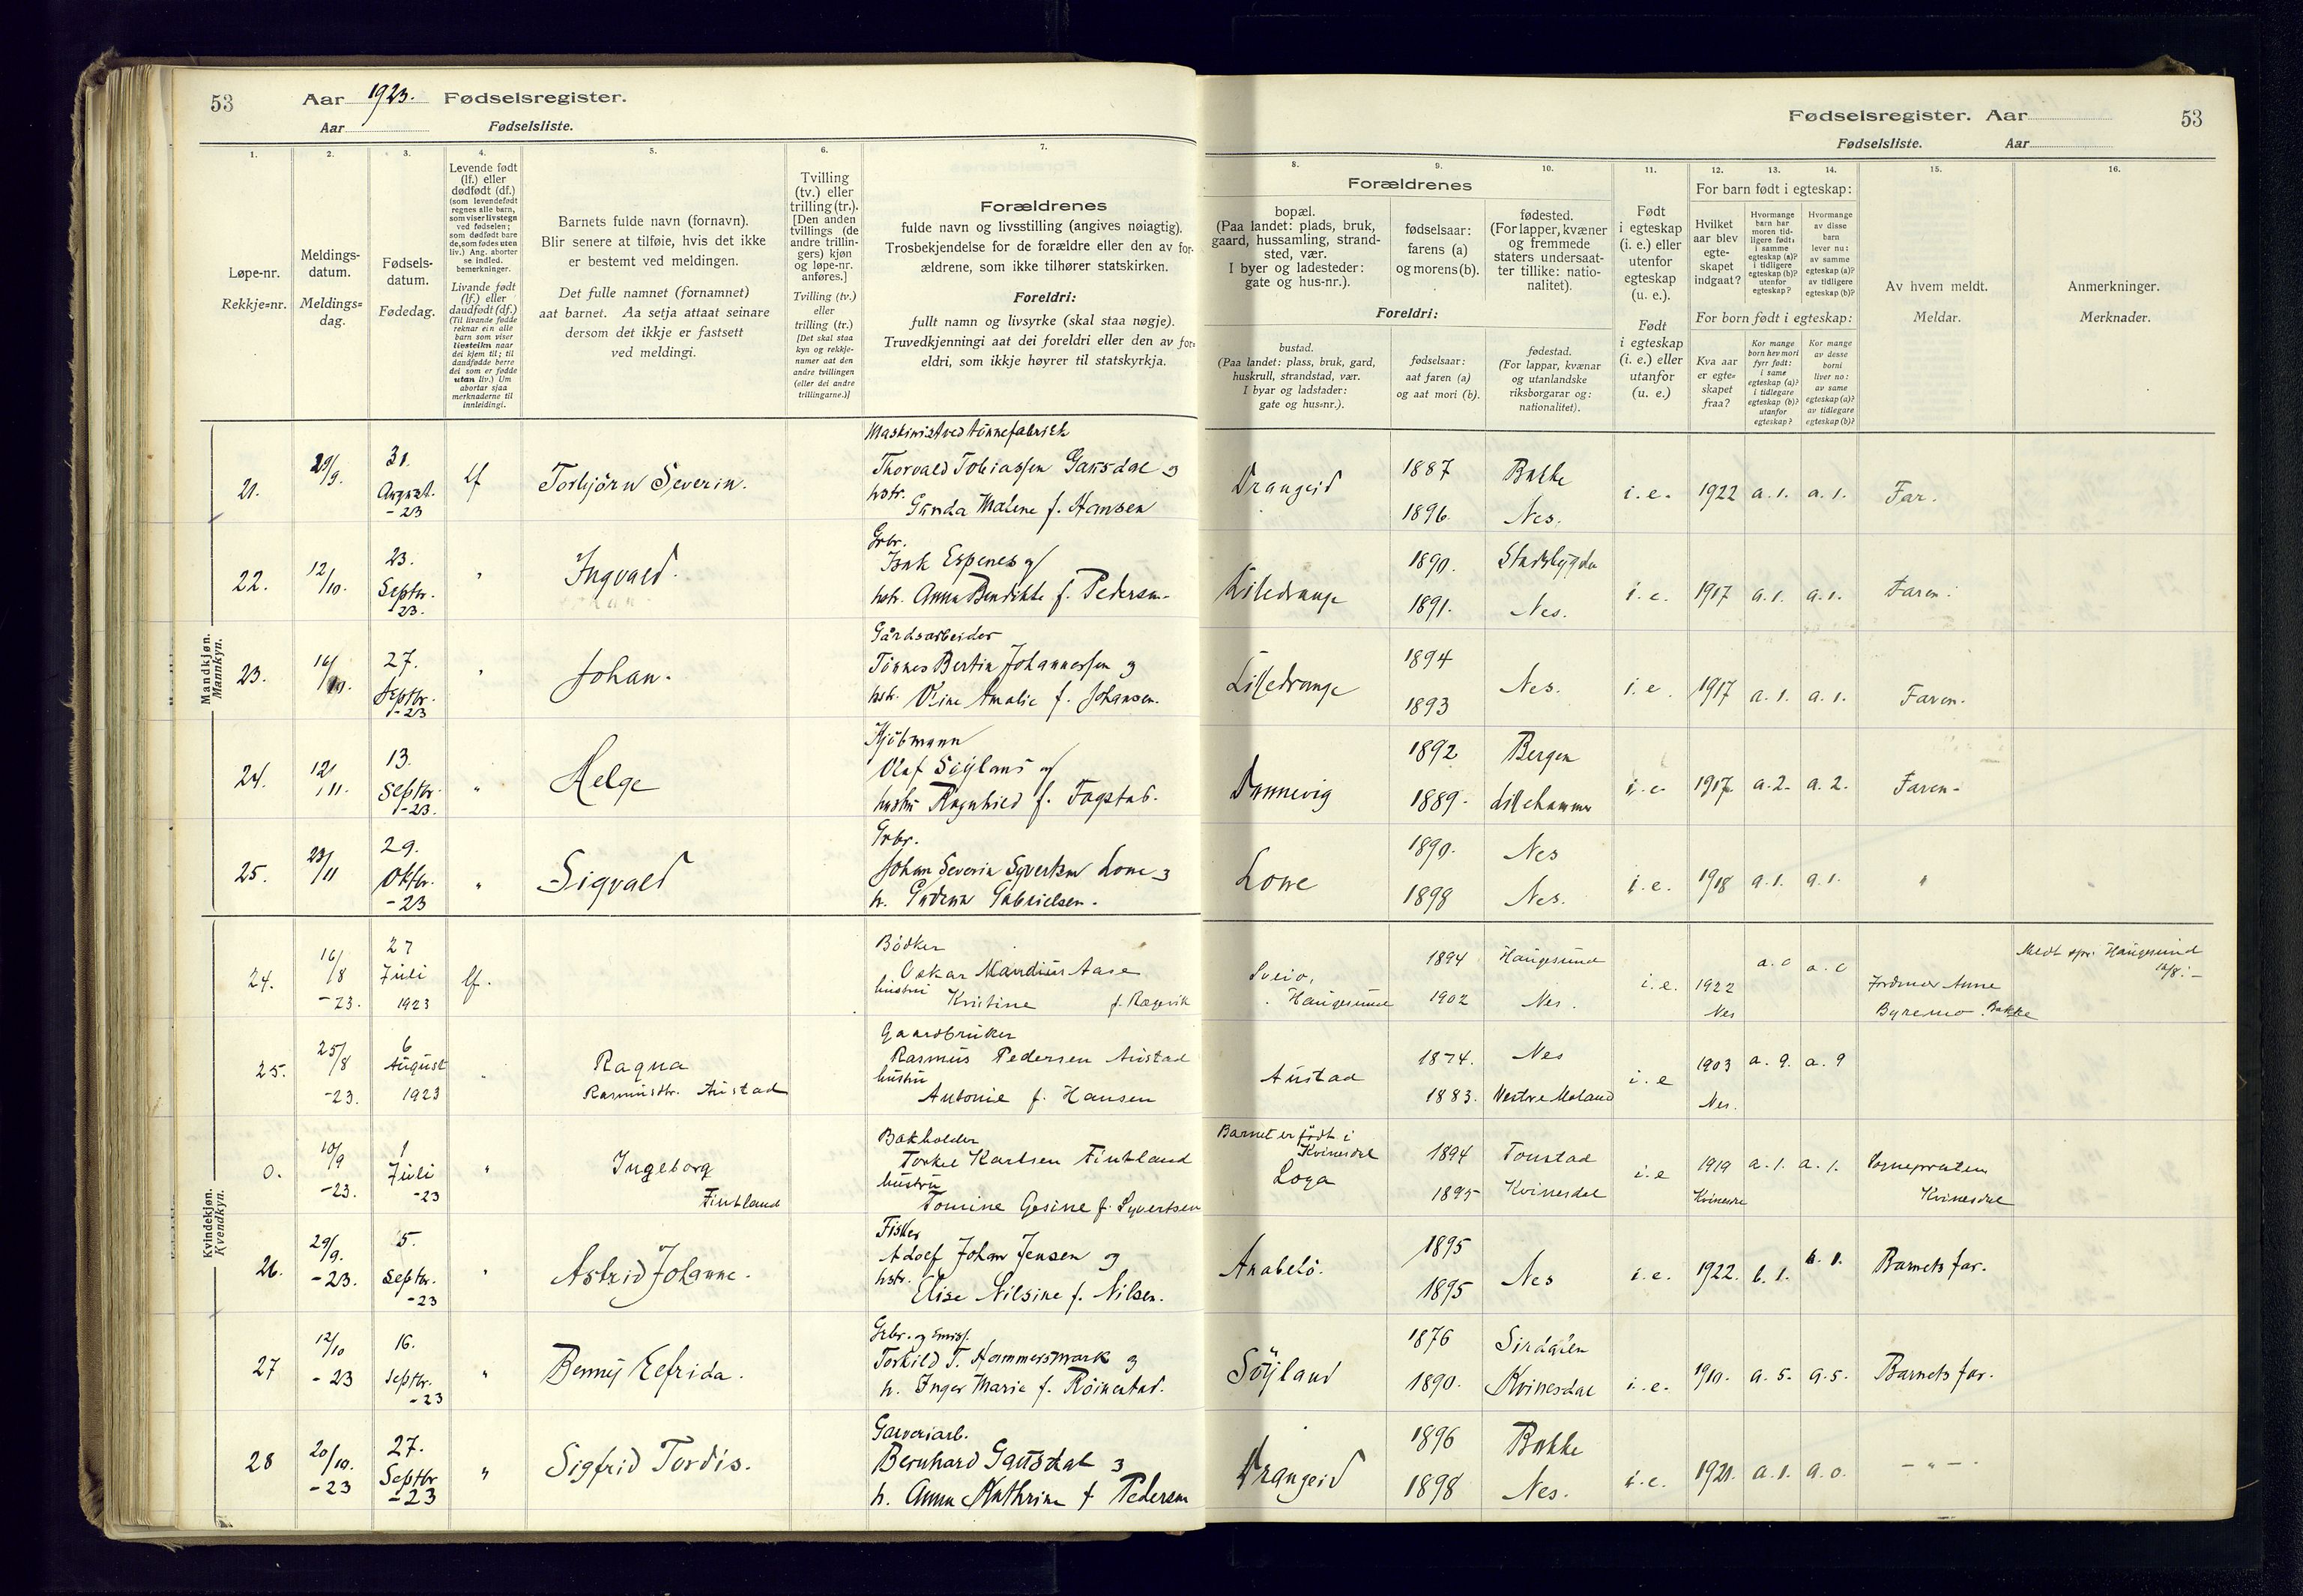 53
Aar 1923. Fødselsregister.
Aar Fødselsliste.
Fødselsregister. Aar
53
Fødselsliste. Aar
1.
Løpe-nr.
Rekkje-nr.
2.
Meldings-
datum.
Meldings-
dag.
3.
Fødsels-
datum.
Fødedag.
4.
Levende født
(lf.) eller
dødfødt (df.)
(som levendefødt
regnes alle barn,
som viser livstegn
ved fødselen;
som dødfødt bare
de, som fødes uten
liv.) Ang. aborter
se indled.
bemerkninger.
Livande født
(lf.) eller
daudfødt (df.)
(Til livande fødde
reknar ein alle
barn som viser
livsteikn naar
dei kjem til; til
daudfødde berre
dei som er fødde
utan liv.) Um
abortar sjaa
merknaderne til
innleidingi.
5.
Barnets fulde navn (fornavn).
Blir senere at tilføie, hvis det ikke
er bestemt ved meldingen.
Det fulle namnet (fornamnet)
aat barnet. Aa setja attaat seinare
dersom det ikkje er fastsett
ved meldingi.
6.
Tvilling
(tv.) eller
trilling (tr.).
[Den anden
tvillings (de
andre trillin-
gers) kjøn
og løpe-nr.
anføres.]
Tvilling (tv.)
eller
trilling (tr.)
[Det skal staa
kyn og rekkje-
numer aat den
andre tvillingen
(eller dei andre
trillingarne.)]
7.
Forældrenes
fulde navn og livsstilling (angives nøiagtig).
Trosbekjendelse for de forældre eller den av for-
ældrene, som ikke tilhører statskirken.
Foreldri:
fullt namn og livsyrke (skal staa nøgje).
Truvedkjenningi aat dei foreldri eller den av for-
eldri, som ikkje høyrer til statskyrkja.
Forældrenes
8.
bopæl.
(Paa landet: plads, bruk,
gaard, hussamling, strand-
sted, vær.
I byer og ladesteder:
gate og hus-nr.).
9.
fødselsaar:
farens (a)
og morens (b).
10.
fødested.
(For lapper, kvæner
og fremmede
staters undersaat-
ter tillike: natio-
nalitet).
Foreldri:
bustad.
(Paa landet: plass, bruk, gard,
huskrull, strandstad, vær.
I byar og ladstader:
gate og hus-nr.).
fødselsaar:
aat faren (a)
og aat mori (b).
fødestad.
(For lappar, kvænar
og utanlandske
riksborgarar og:
nationalitet).
11.
Født
i egteskap
(i. e.) eller
utenfor
egteskap
(u. e.).
Født
i egteskap
(i. e.) eller
utanfor
(u. e.)
12. 13. 14.
For barn født i egteskap:
Hvilket
aar blev
egte-
skapet
indgaat?
Hvormange
barn har
moren tid-
ligere født:
i samme
egteskap (a)?
i tidligere
egteskap (b)?
utenfor
egteskap?
Hvormange
av disse
barn
lever nu:
av samme
egteskap (a)?
av tidligere
egteskap (b)?
For born født i egteskap:
Kva aar
er egte-
skapet
fraa?
Kor mange
born hev mori
fyrr født:
i same
egteskap (a)?
i tidlegare
egteskap (b)?
utanfor
egteskap?
Kor mange
av desse
borni
liver no:
av same
egteskap (a)?
av tidlegare
egteskap (b)?
15.
Av hvem meldt.
Meldar.
16.
Anmerkninger.
Merknader.
Mandkjøn.
Mannkyn.
21. 29/9. 31. August. -23 lf Torbjörn Severin.
Maskinist ved tönnefabrikk
Thorvald Tobiassen Gausdal og
hstr. Gunda Malene f. Hansen
Drangeid 1887 Bakke
1896. Nes.
i. e. 1922 a. 1. a. 1. Far.
22. 12/10. 23. Septbr. -23. " Ingvald.
Grbr.
Isak Espenes og
hstr. Anna Bendikte f. Pedersen
Lilledrange 1890. Stadsbygda
1891. Nes.
i. e. 1917 a. 1. a. 1. Faren.
23. 16/10. 27. Septbr. -23 " Johan.
Gårdsarbeider
Tönnes Bertin Johannessen og
hstr. Oline Amalie f. Johansen.
Lilledrange 1894
1893 Nes.
i. e. 1917 a. 1. a. 1. Faren.
24. 12/11. 13. Septbr. -23. " Helge
Kjöbmann
Olaf Söyland og
hustru Ragnhild f. Fagstad.
Dunnevig 1892 Bergen
1889. Lillehammer
i. e. 1917 a. 2. a. 2. Faren.
25. 23/11 29. Oktbr. -23 " Sigvald
Grbr.
Johan Severin Syvertsen Lone og
h. Gudrun Gabrielsen.
Lone 1890. Nes
1898 Nes.
i. e. 1918 a. 1. a. 1. "
Kvindekjøn.
Kvendkyn.
24. 16/8 -23. 27 Juli 1923 lf.
Bödker
Oskar Mandius Aase
hustru Kristine f. Rægevik
Sveio, Haugesund 1894 Haugesund
1902 Nes.
i. e. 1922 Nes a. 0 a. 0
Jordmor Anne
Byremo. Bakke
Meldt spr. Haugesund
16/8. -
25. 25/8 -23. 6 August 1923 " Ragna
Rasmusdtr. Austad
Gaardbruker
Rasmus Pedersen Austad
hustru
Antonie f. Hansen
Austad 1874. Nes
1883. Vestre Moland
i. e 1903 Nes. a. 9. a. 9
0. 10/9 -23. 1 Juli -23 " Ingeborg
Fintland
Bokholder
Torkel Karlsen Fintland
hustru
Tomine Gesine f. Syvertsen
Barnet er födt i
Kvinesdal
Loga 1894 Tonstad
1895 Kvinesdal
i. e 1919 Kvinesdal a. 1. a. 1. Sognepresten
Kvinesdal
26. 29/9. -23. 5. Septbr. -23 " Astrid Johanne.
Fisker
Adolf Johan Jensen og
hstr. Elise Nilsine f. Nilsen.
Anabelö. 1895
1895 Nes
i. e. 1922. b. 1. b. 1. Barnets far.
27 12/10 -23 16. Septbr. -23 " Benny Elfrida.
Grbr. og Emiss.
Torkild T. Hammersmark og
h. Inger Marie f. Röinestad.
Söyland 1876 Sirdalen
1890. Kvinesdal
i. e. 1910. a. 5. a. 5. Barnets far.
28 20/10. -23 27. Septbr -23 " Sigfrid Tordis.
Garveriarb.
Bernhard Gausdal og
h. Anna Kathrine f Pedersen
Drangeid 1896 Bakke
1898 Nes.
i. e. 1921. a. 1. a. 0. - " -